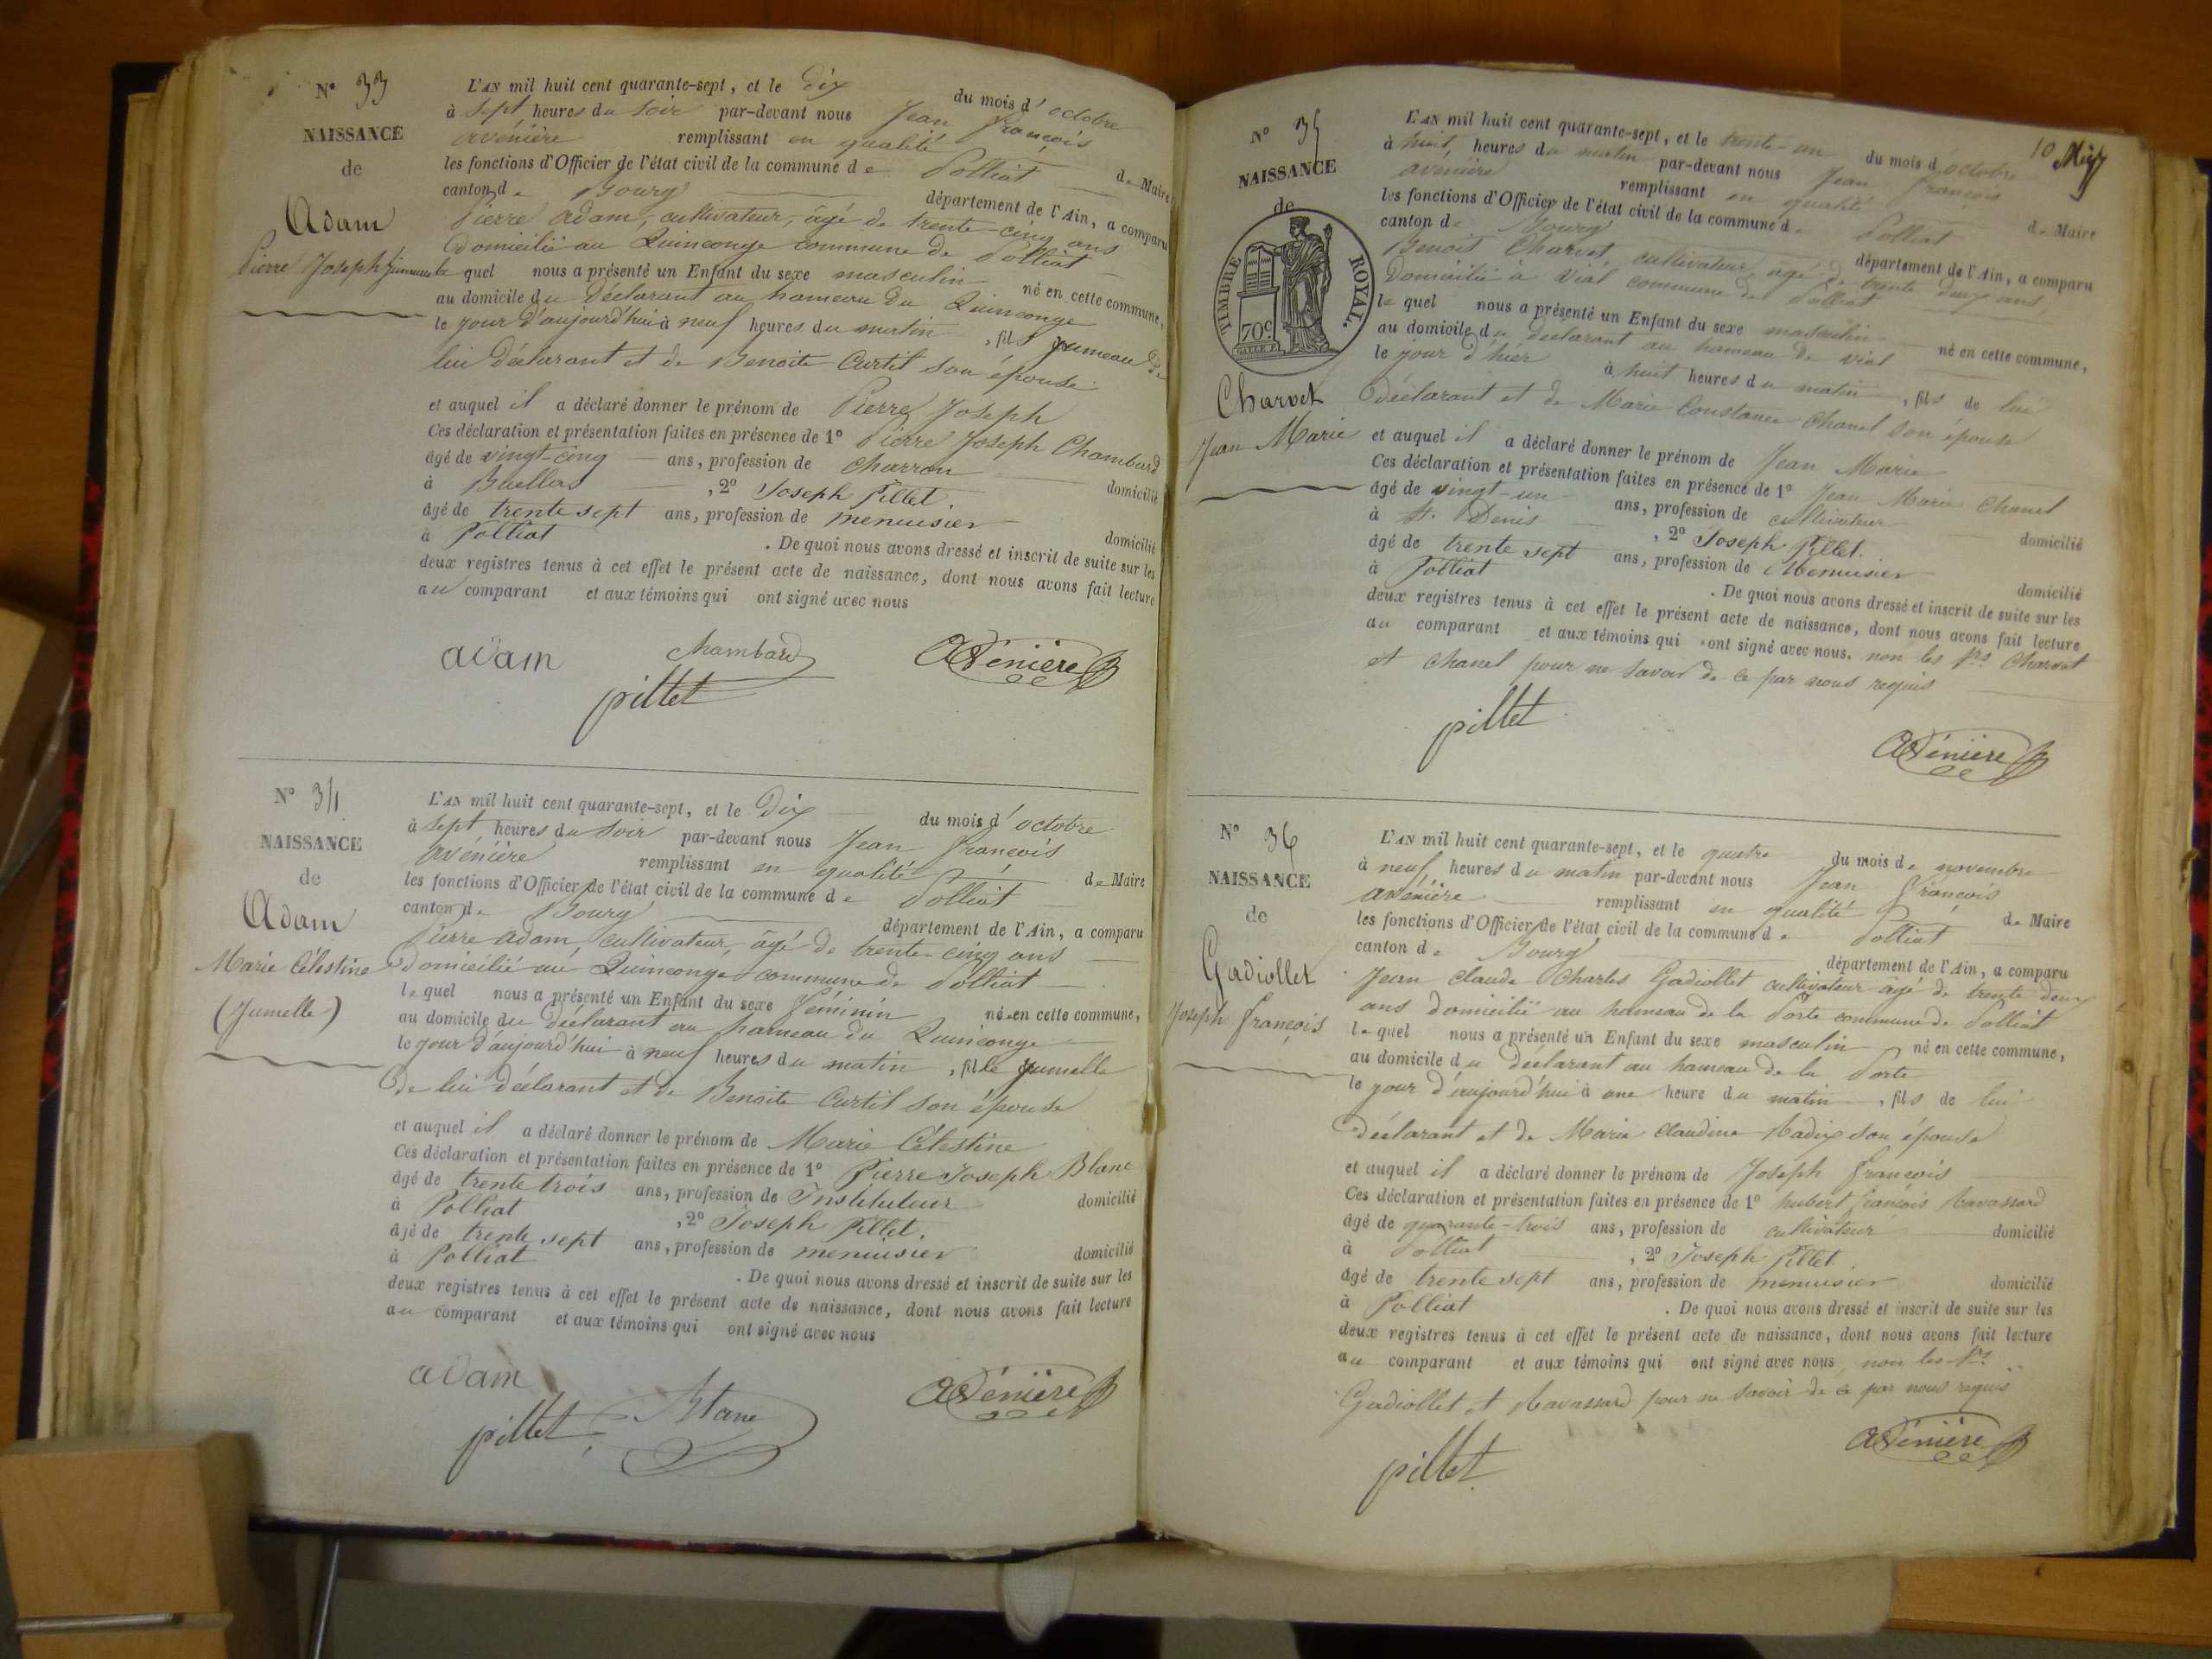 N° 33
NAISSANCE
de
Adam
Pierre Joseph Jumeau
L'AN mil huit cent quarante-sept, et le Dix du mois d'octobre
à sept heures du soir par-devant nous Jean françois
avénière remplissant en qualité de Maire
les fonctions d'Officier de l'état civil de la commune de Polliat
canton de Bourg département de l'Ain, a comparu
Pierre adam, cultivateur, âgé de trente-cinq ans
Domicilié au Quinconge commune de Polliat
le quel nous a présenté un Enfant du sexe masculin né en cette commune,
au domicile du Déclarant au hameau du Quinconge
le jour d'aujourd'hui à neuf heures du matin, fils jumeau de
lui déclarant et de Benoite Curtil son épouse
et auquel il a déclaré donner le prénom de Pierre Joseph
Ces déclaration et présentation faites en présence de 1° Pierre Joseph Chambard
âgé de vingt-cinq ans, profession de charron domicilié
à Buellas, 2° Joseph Pillet
âgé de trente sept ans, profession de menuisier domicilié
à Polliat. De quoi nous avons dressé et inscrit de suite sur les
deux registres tenus à cet effet le présent acte de naissance, dont nous avons fait lecture
au comparant et aux témoins qui ont signé avec nous
adam chambard Avénière
pillet
N° 34
NAISSANCE
de
Adam
Marie Célestine
(Jumelle)
L'AN mil huit cent quarante-sept, et le Dix du mois d'octobre
à sept heures du soir par-devant nous Jean françois
avénière remplissant en qualité de Maire
les fonctions d'Officier de l'état civil de la commune de Polliat
canton de Bourg département de l'Ain, a comparu
Pierre adam, cultivateur, âgé de trente-cinq ans
Domicilié au Quinconge commune de Polliat
le quel nous a présenté un Enfant du sexe féminin née en cette commune,
au domicile du déclarant au hameau du Quinconge
le jour d'aujourd'hui à neuf heures du matin, fille jumelle
de lui déclarant et de Benoite Curtil son épouse
et auquel il a déclaré donner le prénom de Marie Célestine
Ces déclaration et présentation faites en présence de 1° Pierre Joseph Blanc
âgé de trente trois ans, profession de Instituteur domicilié
à Polliat, 2° Joseph Pillet.
âgé de trente sept ans, profession de menuisier domicilié
à Polliat. De quoi nous avons dressé et inscrit de suite sur les
deux registres tenus à cet effet le présent acte de naissance, dont nous avons fait lecture
au comparant et aux témoins qui ont signé avec nous
adam Avénière
pillet Blanc
10
N° 35
NAISSANCE
de
TIMBRE ROYAL.
70c
Charvet
Jean Marie
L'AN mil huit cent quarante-sept, et le trente-un du mois d octobre
à huit heures du matin par-devant nous Jean françois
avénière remplissant en qualité de Maire
les fonctions d'Officier de l'état civil de la commune de Polliat
canton de Bourg département de l'Ain, a comparu
Benoit Charvet, cultivateur, âgé de trente deux ans,
Domicilié à Vial commune de Polliat
le quel nous a présenté un Enfant du sexe masculin né en cette commune,
au domicile du déclarant au hameau de Vial
le jour d'hier à huit heures du matin, fils de lui
déclarant et de Marie Constance Chanel son épouse
et auquel il a déclaré donner le prénom de Jean Marie
Ces déclaration et présentation faites en présence de 1° Jean Marie Chanel
âgé de vingt-un ans, profession de cultivateur domicilié
à St. Denis, 2° Joseph Pillet.
âgé de trente sept ans, profession de Menuisier domicilié
à Polliat. De quoi nous avons dressé et inscrit de suite sur les
deux registres tenus à cet effet le présent acte de naissance, dont nous avons fait lecture
au comparant et aux témoins qui ont signé avec nous. non les Charvet
et Chanel pour ne savoir de ce par nous requis
pillet Avénière
N° 36
NAISSANCE
de
Gadiollet
Joseph françois
L'AN mil huit cent quarante-sept, et le quatre du mois de novembre
à neuf heures du matin par-devant nous Jean françois
avénière remplissant en qualité de Maire
les fonctions d'Officier de l'état civil de la commune de Polliat
canton de Bourg département de l'Ain, a comparu
Jean claude Charles Gadiollet cultivateur âgé de trente deux
ans domicilié au hameau de la Porte commune de Polliat
le quel nous a présenté un Enfant du sexe masculin né en cette commune,
au domicile du déclarant au hameau de la Porte
le jour d'aujourd'hui à une heure du matin, fils de lui
déclarant et de Marie Claudine son épouse
et auquel il a déclaré donner le prénom de Joseph françois
Ces déclaration et présentation faites en présence de 1° hubert françois
âgé de quarante-trois ans, profession de cultivateur domicilié
à Polliat, 2° Joseph Pillet
âgé de trente sept ans, profession de menuisier domicilié
à Polliat. De quoi nous avons dressé et inscrit de suite sur les
deux registres tenus à cet effet le présent acte de naissance, dont nous avons fait lecture
au comparant et aux témoins qui ont signé avec nous, non les
Gadiollet et pour ne savoir de ce par nous requis
pillet. Avénière